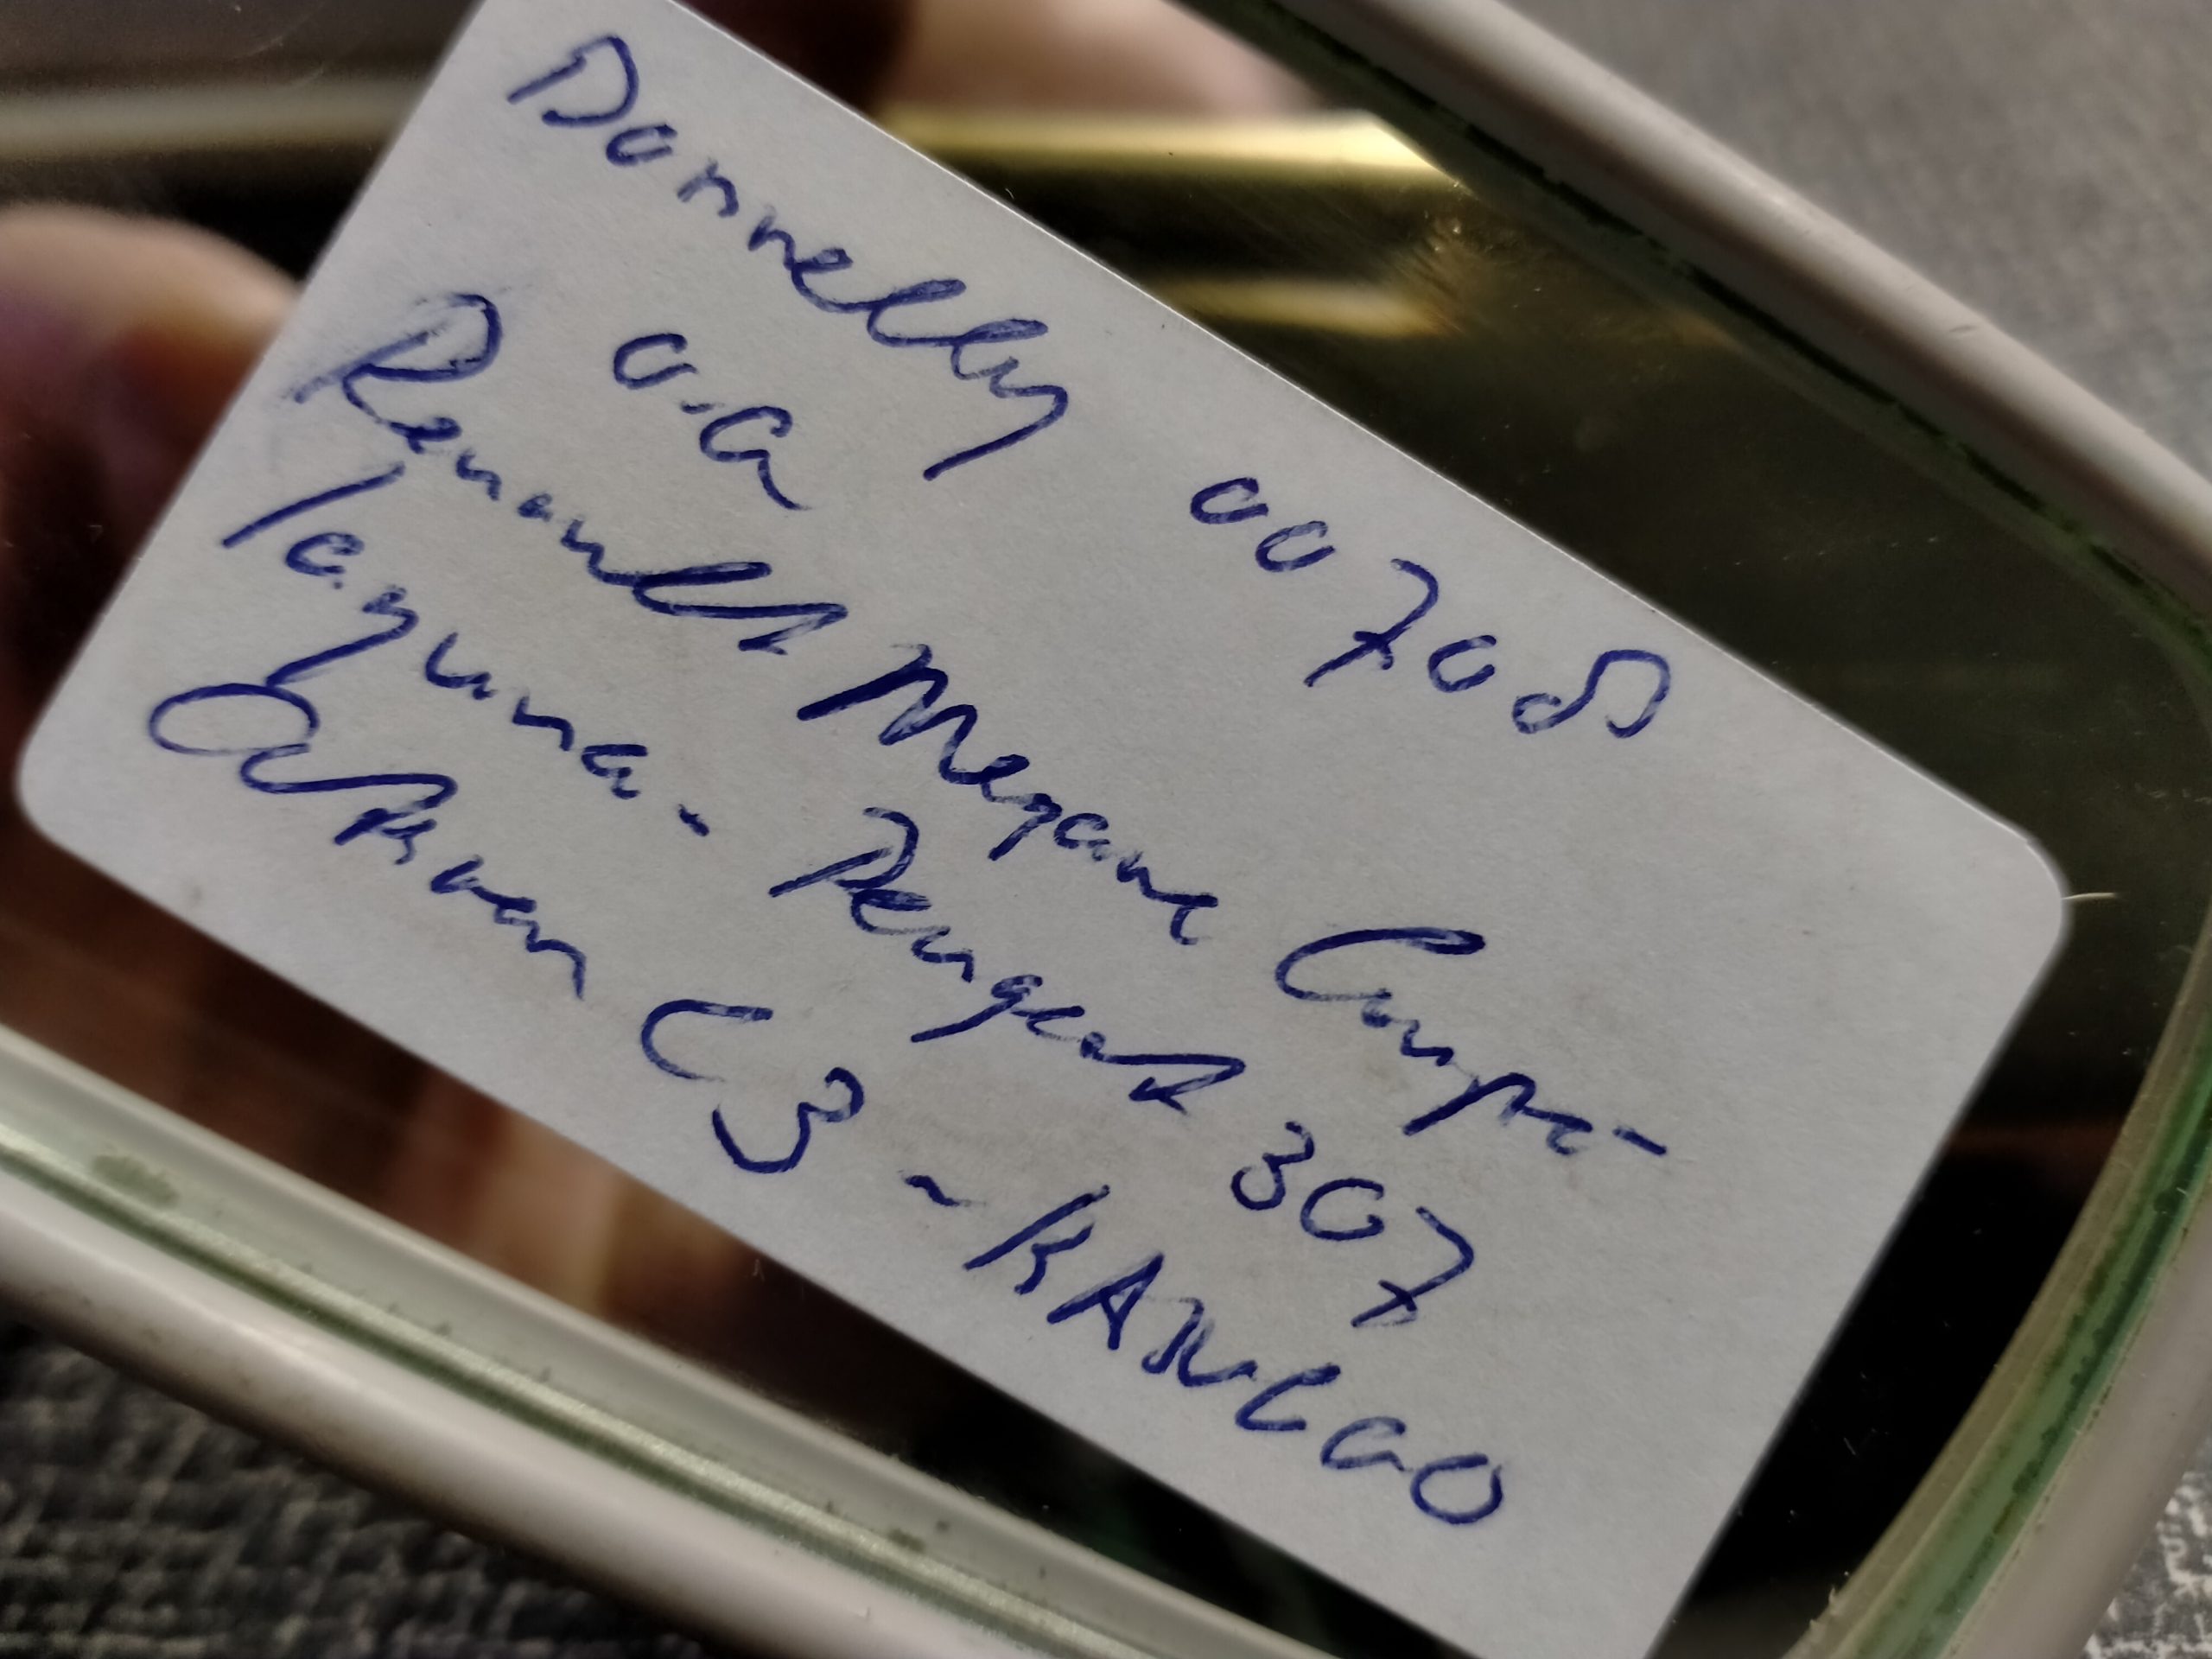 Donnelly 00708
o.a
Renault Megane Coupe-
laguna- Peugeot 307
Citroen C3 - KANGOO